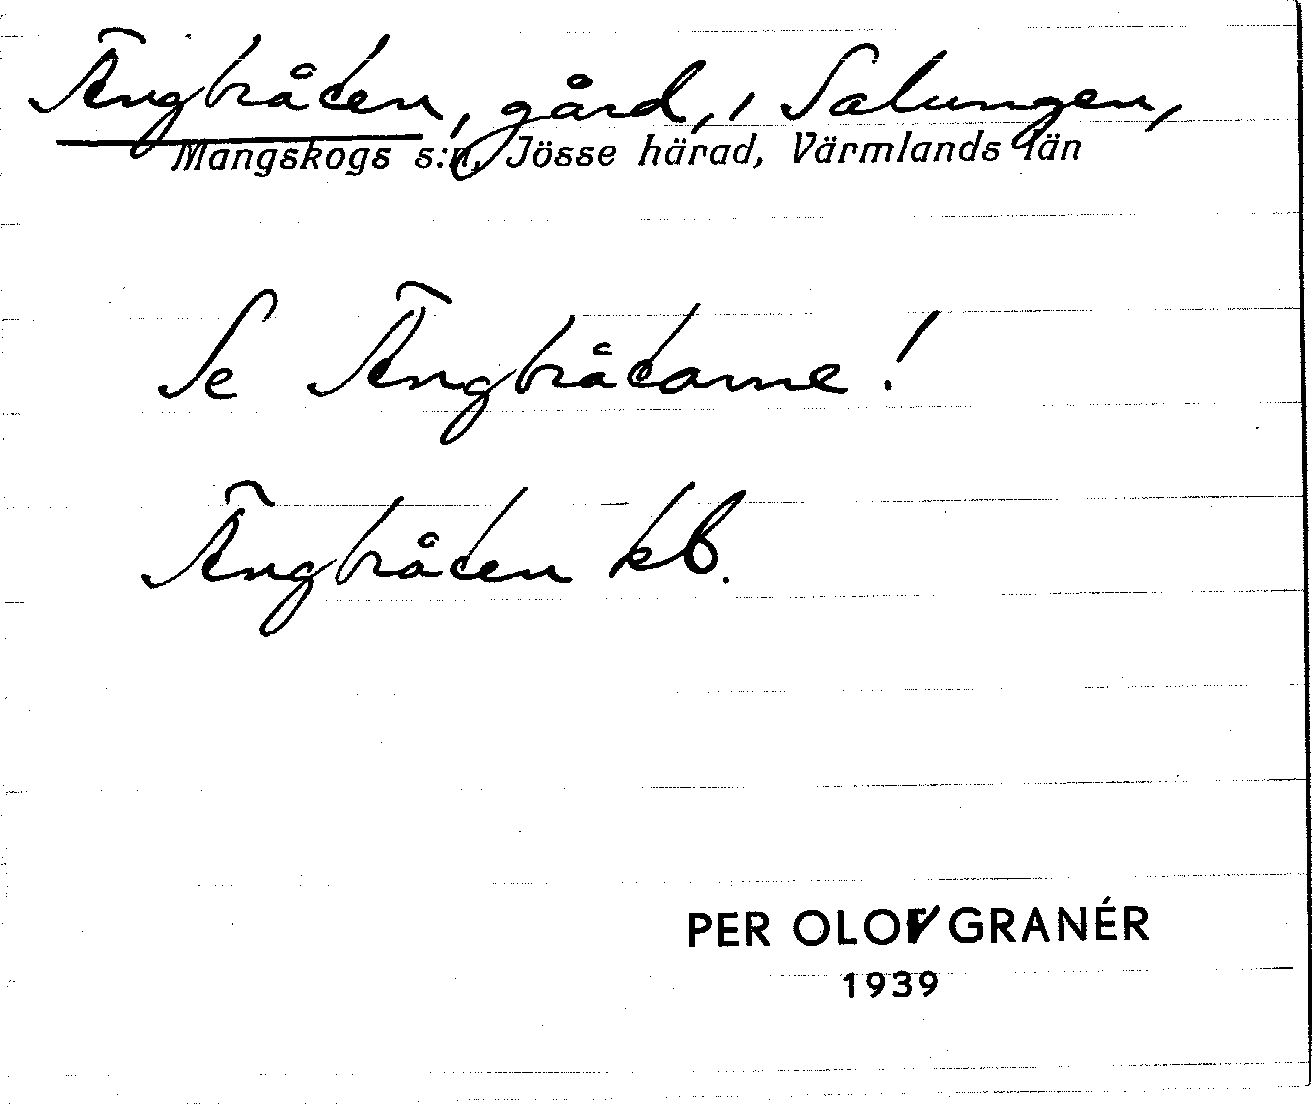 Ängbråten, gård, i Salungen,
Mangskogs s:n, Jösse härad, Värmlands län
Se Ängbråtarne!
Ängbråten kb.
PER OLOV GRANÉR
1939